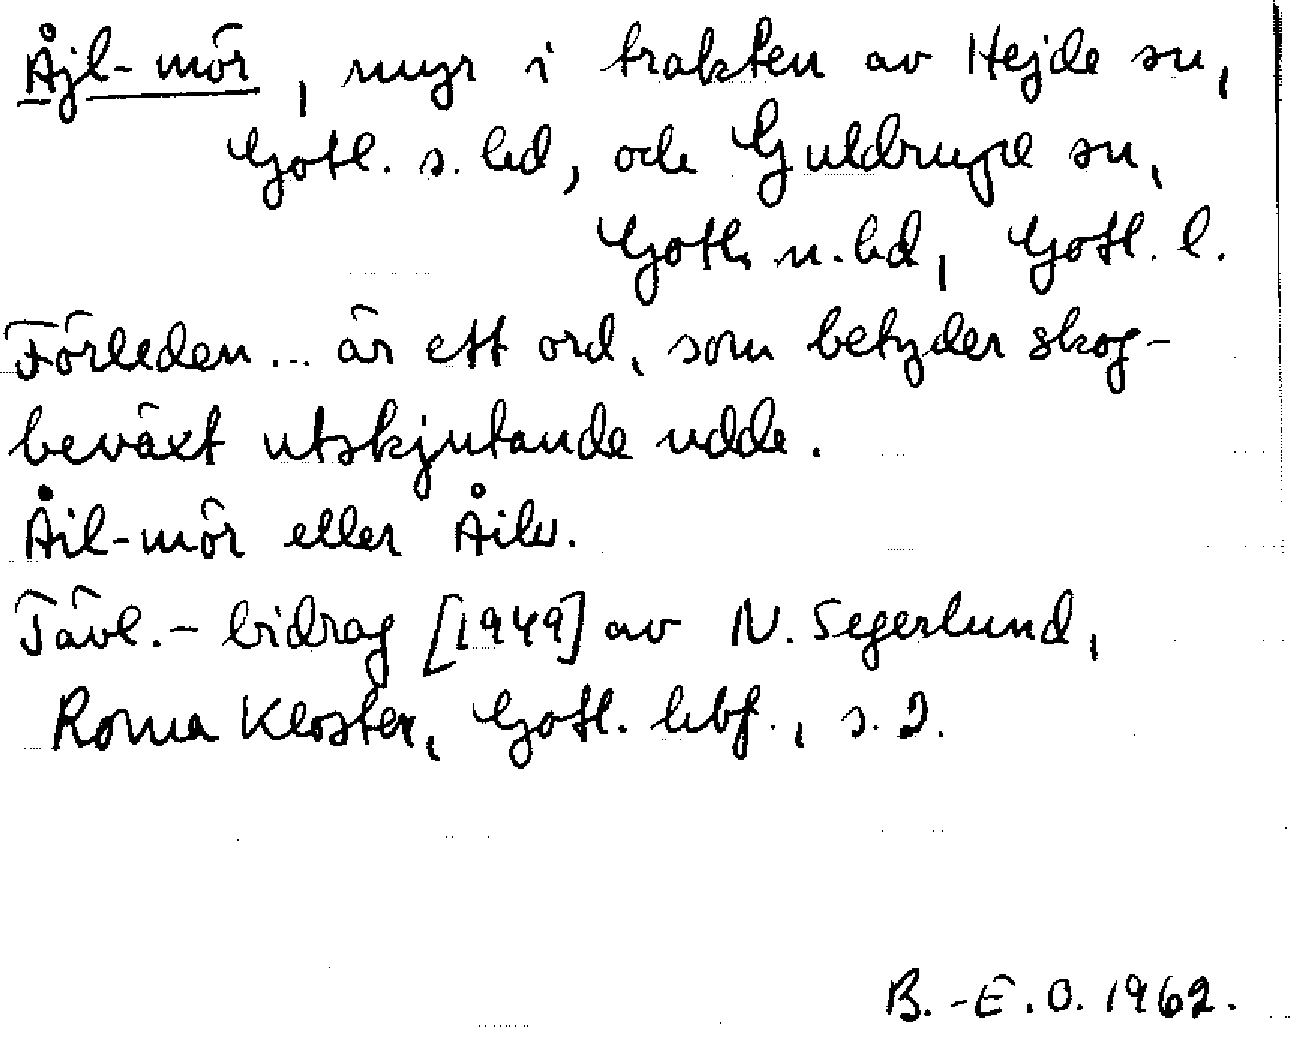 Åjl-mör, myr i trakten av Hejde sn,
Gotl. s. hd, och Guldrupe sn,
Gotl. n. hd, Gotl. l.
Förleden... är ett ord, som betyder skog-
beväxt utskjutande udde.
Åil-mör eller Åilv.
Tävl.-bidrag [1949] av N. Segerlund,
Roma Kloster, Gotl. lbf., s. 2.
B.-E. O. 1962.